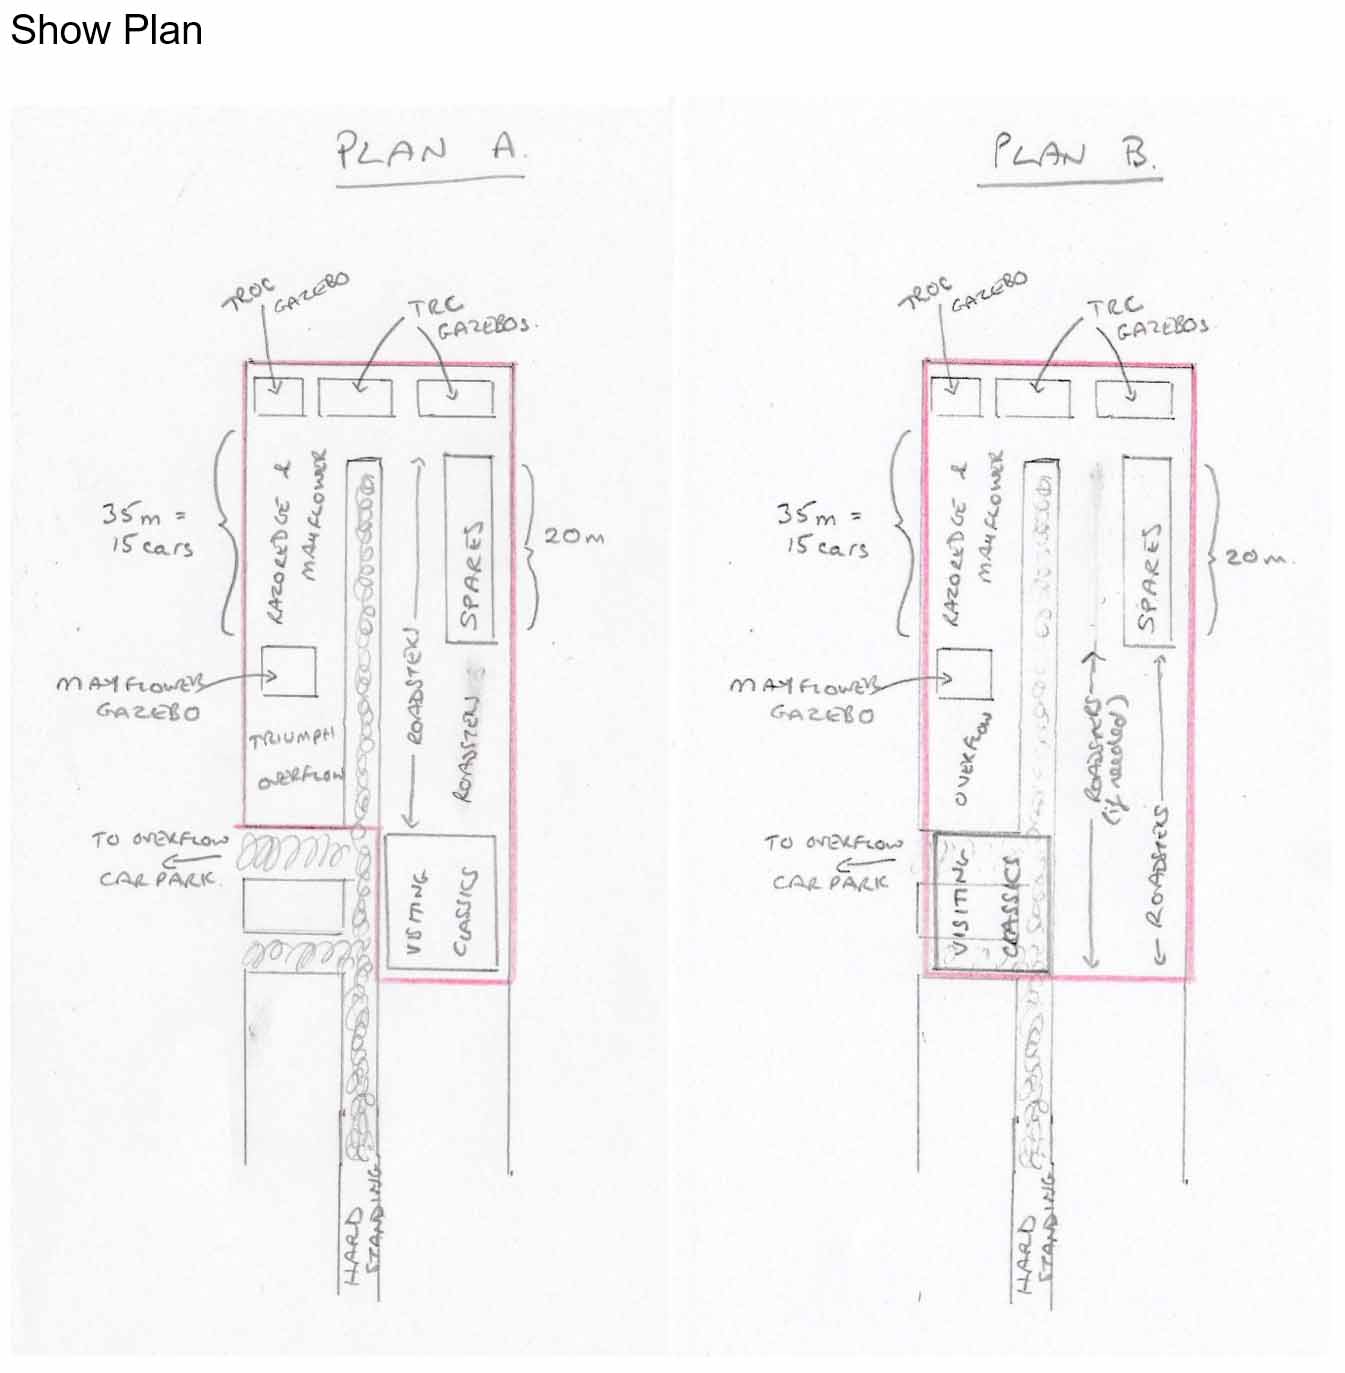 Show Plan
PLAN A.
TROC
GAZEBO
TRC
GAZEBOS.
35m =
15 cars
RAZOREDGE &
MAYFLOWER
SPARES
20m
MAYFLOWER
GAZEBO
ROADSTERS
ROADSTERS
TRIUMPH
OVERFLOW
TO OVERFLOW
CAR PARK.
VISITING
CLASSICS
HARD
STANDING
PLAN B.
TROC
GAZEBO
TRC
GAZEBOS.
35m =
15 cars
RAZOREDGE &
MAYFLOWER
SPARES
20m.
MAYFLOWER
GAZEBO
OVERFLOW
ROADSTERS
(if needed)
ROADSTERS
TO OVERFLOW
CAR PARK
VISITING
CLASSICS
HARD
STANDING